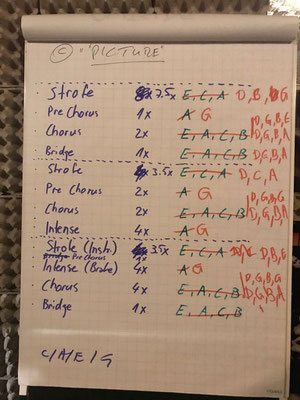 © "PICTURE"
Strofe x 7.5x E, C, A D, B, G
Pre Chorus 1x A G D, G, B, E
Chorus 2x E, A, C, B D, G, B, A
Bridge 1x E, A, C, B D, G, B, A
Strofe 3.5x E, C, A D, C, A
Pre Chorus 2x A G D, G, B, G
Chorus 2x E, A, C, B D, G, B, A
Intense 4x A G
Strofe (Instr.) 3.5x E, C, A D, B, G
Bridge Pre Chorus 1x
Intense (Brake) 4x A G D, G, B, G
Chorus 4x E, A, C, B D, G, B, A
Bridge 1x E, A, C, B
C/A/E/G